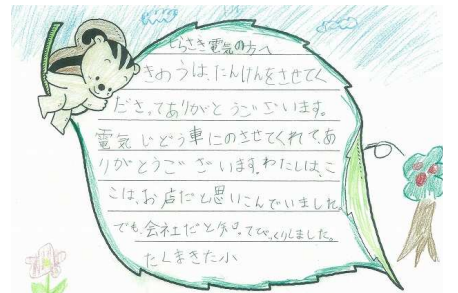 しらさき電気の方へ
きのうは、たんけんをさせてく
ださってありがとうございます。
電気じどう車にのさせてくれて、あ
りがとうございます。わたしは、こ
こは、お店だと思いこんでいました。
でも、会社だと知ってびっくりしました。
たくまきた小